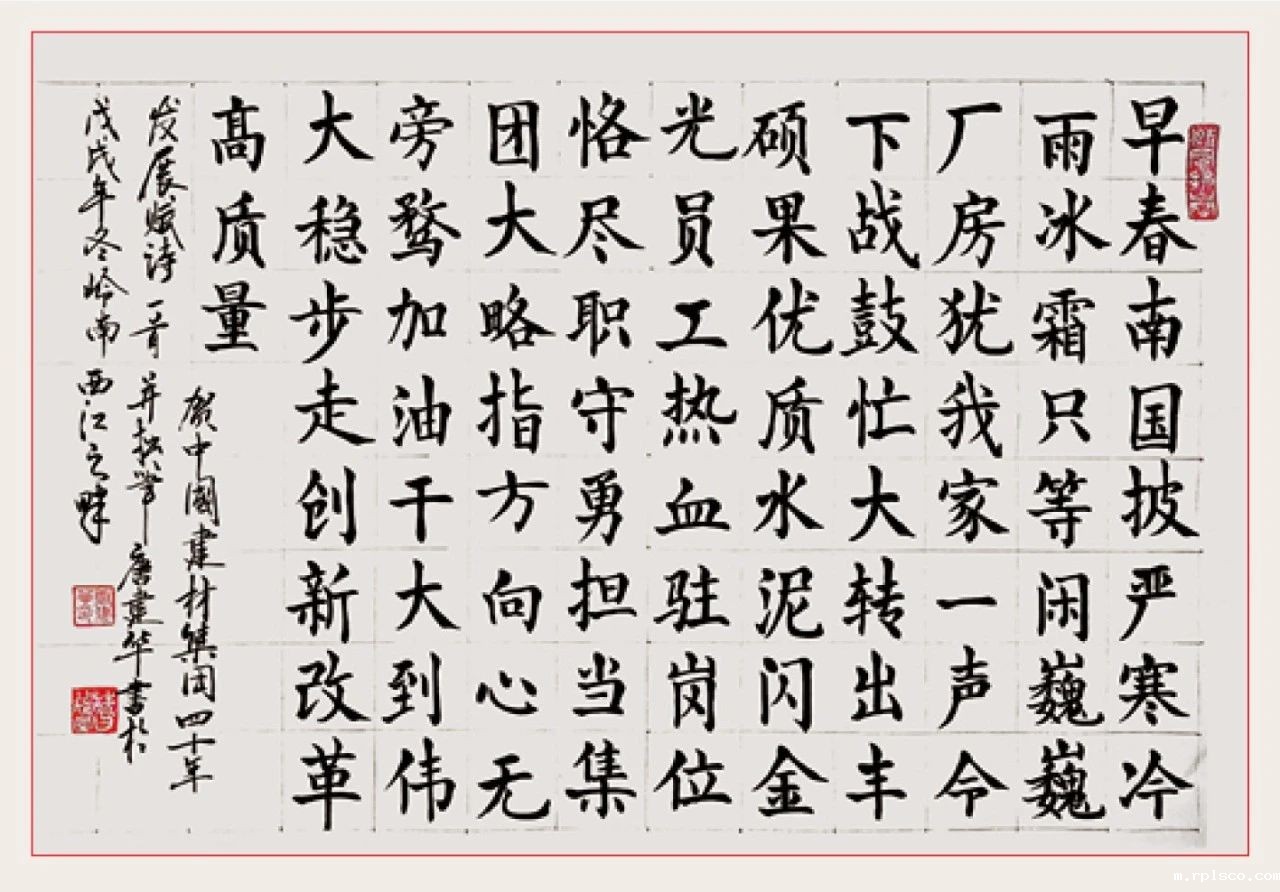 早春南国披严寒冷
雨冰霜只等闲巍巍
厂房犹我家一声令
下战鼓忙大转出丰
硕果优质水泥闪金
光员工热血驻岗位
恪尽职守勇担当集
团大略指方向心无
旁鹜加油干大到伟
大稳步走创新改革
高质量
贺中國建材集团四十年
发展赋诗一首 并执笔 唐建华书於
戊戌年冬岭南西江之畔
m.rplsco.com